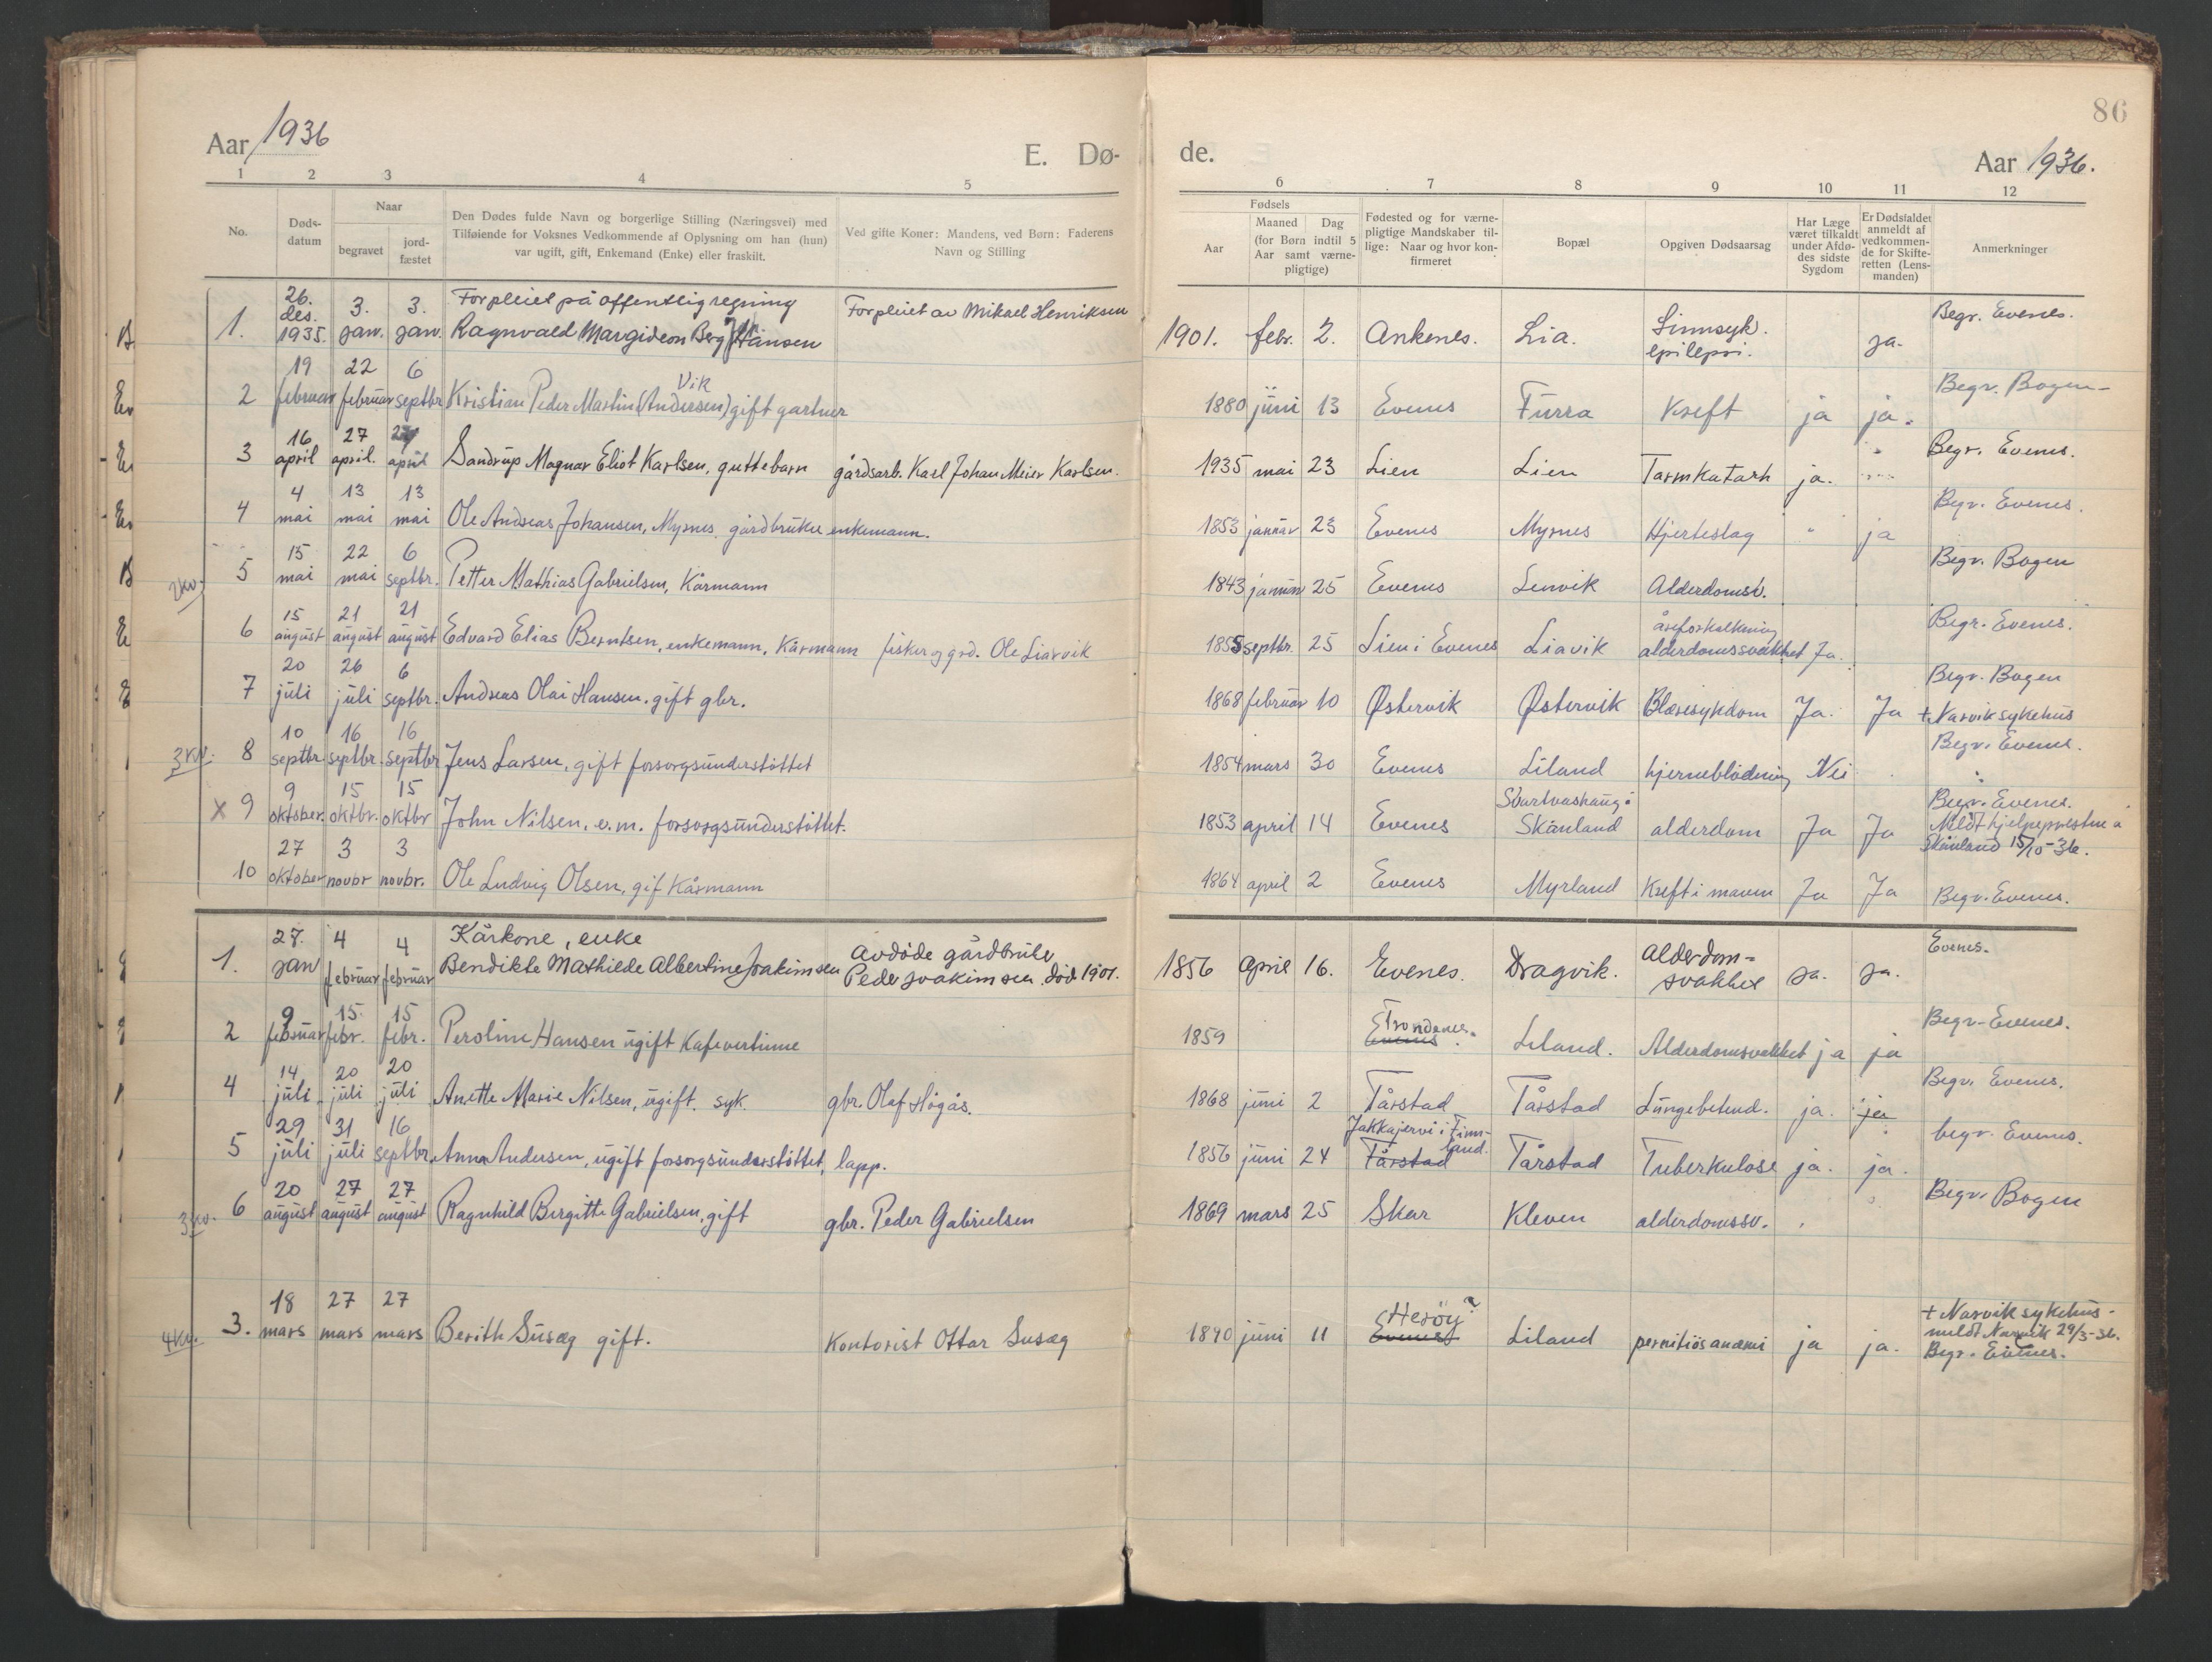 86
Aar 1936
E. Dø-
de.
Aar 1936.
1 2 3 4 5 6 7 8 9 10 11 12
No.
Døds-
datum
Naar
begravet
jord-
fæstet
Den Dødes fulde Navn og borgerlige Stilling (Næringsvei) med
Tilføiende for Voksnes Vedkommende af Oplysning om han (hun)
var ugift, gift, Enkemand (Enke) eller fraskilt.
Ved gifte Koner: Mandens, ved Børn: Faderens
Navn og Stilling
Fødsels
Aar
Maaned Dag
(for Børn indtil 5
Aar samt værne-
pligtige)
Fødested og for værne-
pligtige Mandskaber til-
lige: Naar og hvor kon-
firmeret
Bopæl
Opgiven Dødsaarsag
Har Læge
været tilkaldt
under Afdø-
des sidste
Sygdom
Er Dødsfaldet
anmeldt af
vedkommen-
de for Skifte-
retten (Lens-
manden)
Anmerkninger
26. Forpleiet på offentlig regning Forpleiet av Mikael Henriksen Begr. Evenes.
1. des. 1935. 3. jan. 3. jan. Ragnvald Margideon Berg Hansen 1901. febr. 2. Ankenes. Lia. Sinnsyk. epilepsi. ja.
19 22 6 Vik Begr. Bogen
2 februar februar septbr Kristian Peder Martin (Andersen) gift gartner 1880 juni 13 Evenes Furra Kreft ja ja.
16 27 27 Begr. Evenes.
3 april april. april Sandrup Magnar Eliot Karlsen, guttebarn gårdsarb. Karl Johan Meier Karlsen. 1935 mai 23 Lien Lien Tarmkatarh ja.
4 13 13 Begr. Evenes.
4 mai mai mai Ole Andreas Johansen, Myrnes. gårdbruker enkemann. 1853 januar 23 Evenes Myrnes Hjerteslag " ja
15 22 6 Begr. Bogen
2 kv. 5 mai mai septbr. Petter Mathias Gabrielsen, Kårmann 1843 januar 25 Evenes Lenvik Alderdomsv.
15 21 21 åreforkalkning Begr. Evenes.
6 august august august Edvard Elias Berntsen, enkemann, Kårmann fisker og grd. Ole Liavik 1855 septbr. 25 Lien i Evenes Liavik alderdomssvakhet Ja.
20 26 6 Begr. Bogen
7 juli juli septbr. Andreas Olai Hansen. gift gbr. 1868 februar 10 Østervik Østervik Blæresykdom Ja. Ja + Narvik sykehus
10 16 16 Begr. Evenes.
3 kv. 8 septbr. septbr. septbr Jens Larsen, gift forsorgsunderstöttet 1854 mars 30 Evenes Liland hjerneblödning Nei
9 15 15 Svartvashaug i Begr. Evenes.
x 9 oktober. oktbr. oktbr John Nilsen, e.m. forsorgsunderstöttet. 1853 april 14 Evenes Skånland alderdom Ja Ja Meldt hjelpeprestne i
Skånland 15/10-36.
27 3 3
10 oktober novbr novbr. Ole Ludvig Olsen, gif Kårmann 1864 april 2 Evenes Myrland Kreft i maven Ja Ja Begr. Evenes.
27. 4 4 Kårkone, enke avdöde gårdbruker Alderdom- Evenes.
1. jan februar februar Bendikte Mathilde Albertine Joakimsen Peder Joakimsen. död 1901. 1856 april 16. Evenes. Dragvik. svakhet ja. ja.
9 15. 15 Trondenes. Begr. Evenes.
2 februar febr. febr. Peroline Hansen ugift Kafevertinne 1859 Evenes Liland. Alderdomsvakhet ja ja
14 20 20 Begr. Evenes.
4 juli juli juli Anette Marie Nilsen, ugift. syk. gbr. Olaf Högås. 1868 juni 2 Tårstad Tårstad Lungebetend. ja. ja
29 31 16 Jukkajervi i Finnland. begr. Evenes.
5 juli juli septbr. Anna Andersen, ugift forsorgsunderstöttet, lapp. 1856 juni 24 Tårstad Tårstad Tuberkulose ja. ja.
20 27 27 Begr. Bogen
3 kv. 6 august august august Ragnhild Birgitte Gabrielsen, gift gbr. Peder Gabrielsen 1869 mars 25 Skar Kleven alderdomssv.
18 27 27 Heröy? + Narvik sykehus-
4 kv. 3. mars mars mars Berith Susæg gift. Kontorist Ottar Susæg 1890 juni 11 Evenes Liland pernitiös anæmi ja ja. meldt Narvik 29/3-36.
Begr. Evenes.